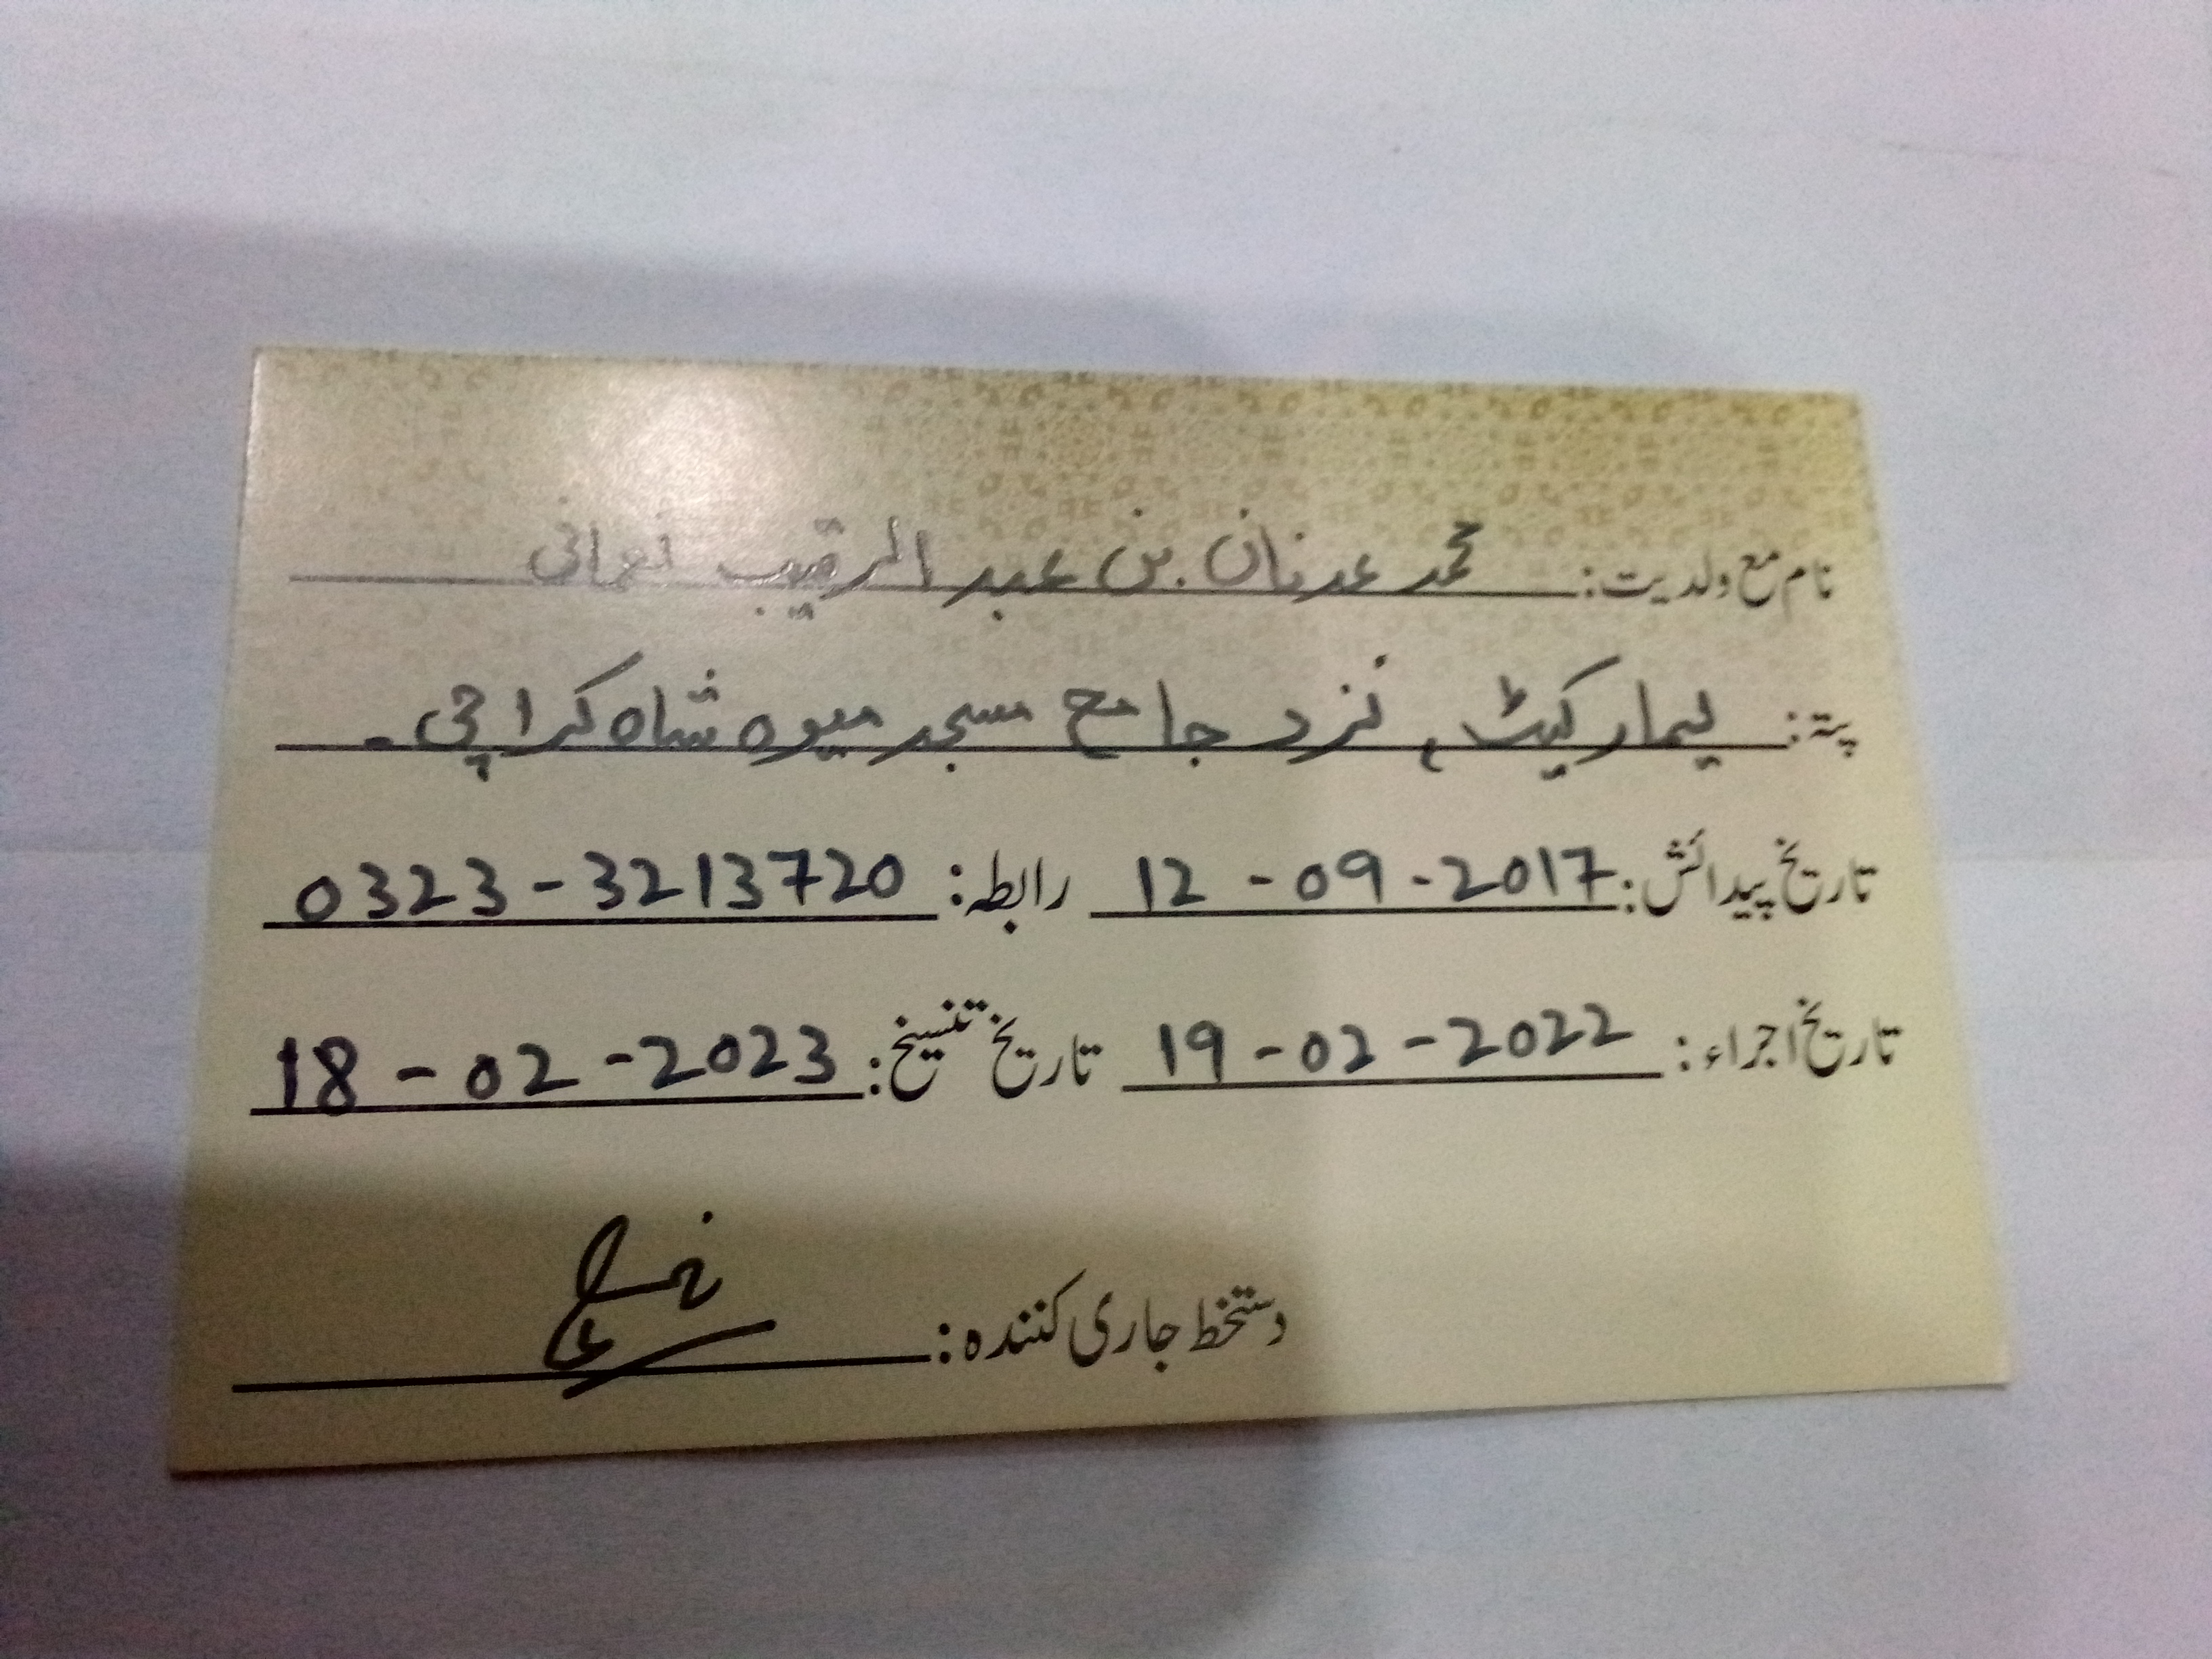 نام مع ولدیت: محمد عدنان بن عبد الرقیب نعمانی
پتہ: لیمارکیٹ، نزد جامع مسجد میوہ شاہ کراچی۔
تاریخ پیدائش: 12-09-2017 رابطہ: 0323-3213720
تاریخ اجراء: 19-02-2022 تاریخ تنسیخ: 18-02-2023
دستخط جاری کنندہ: